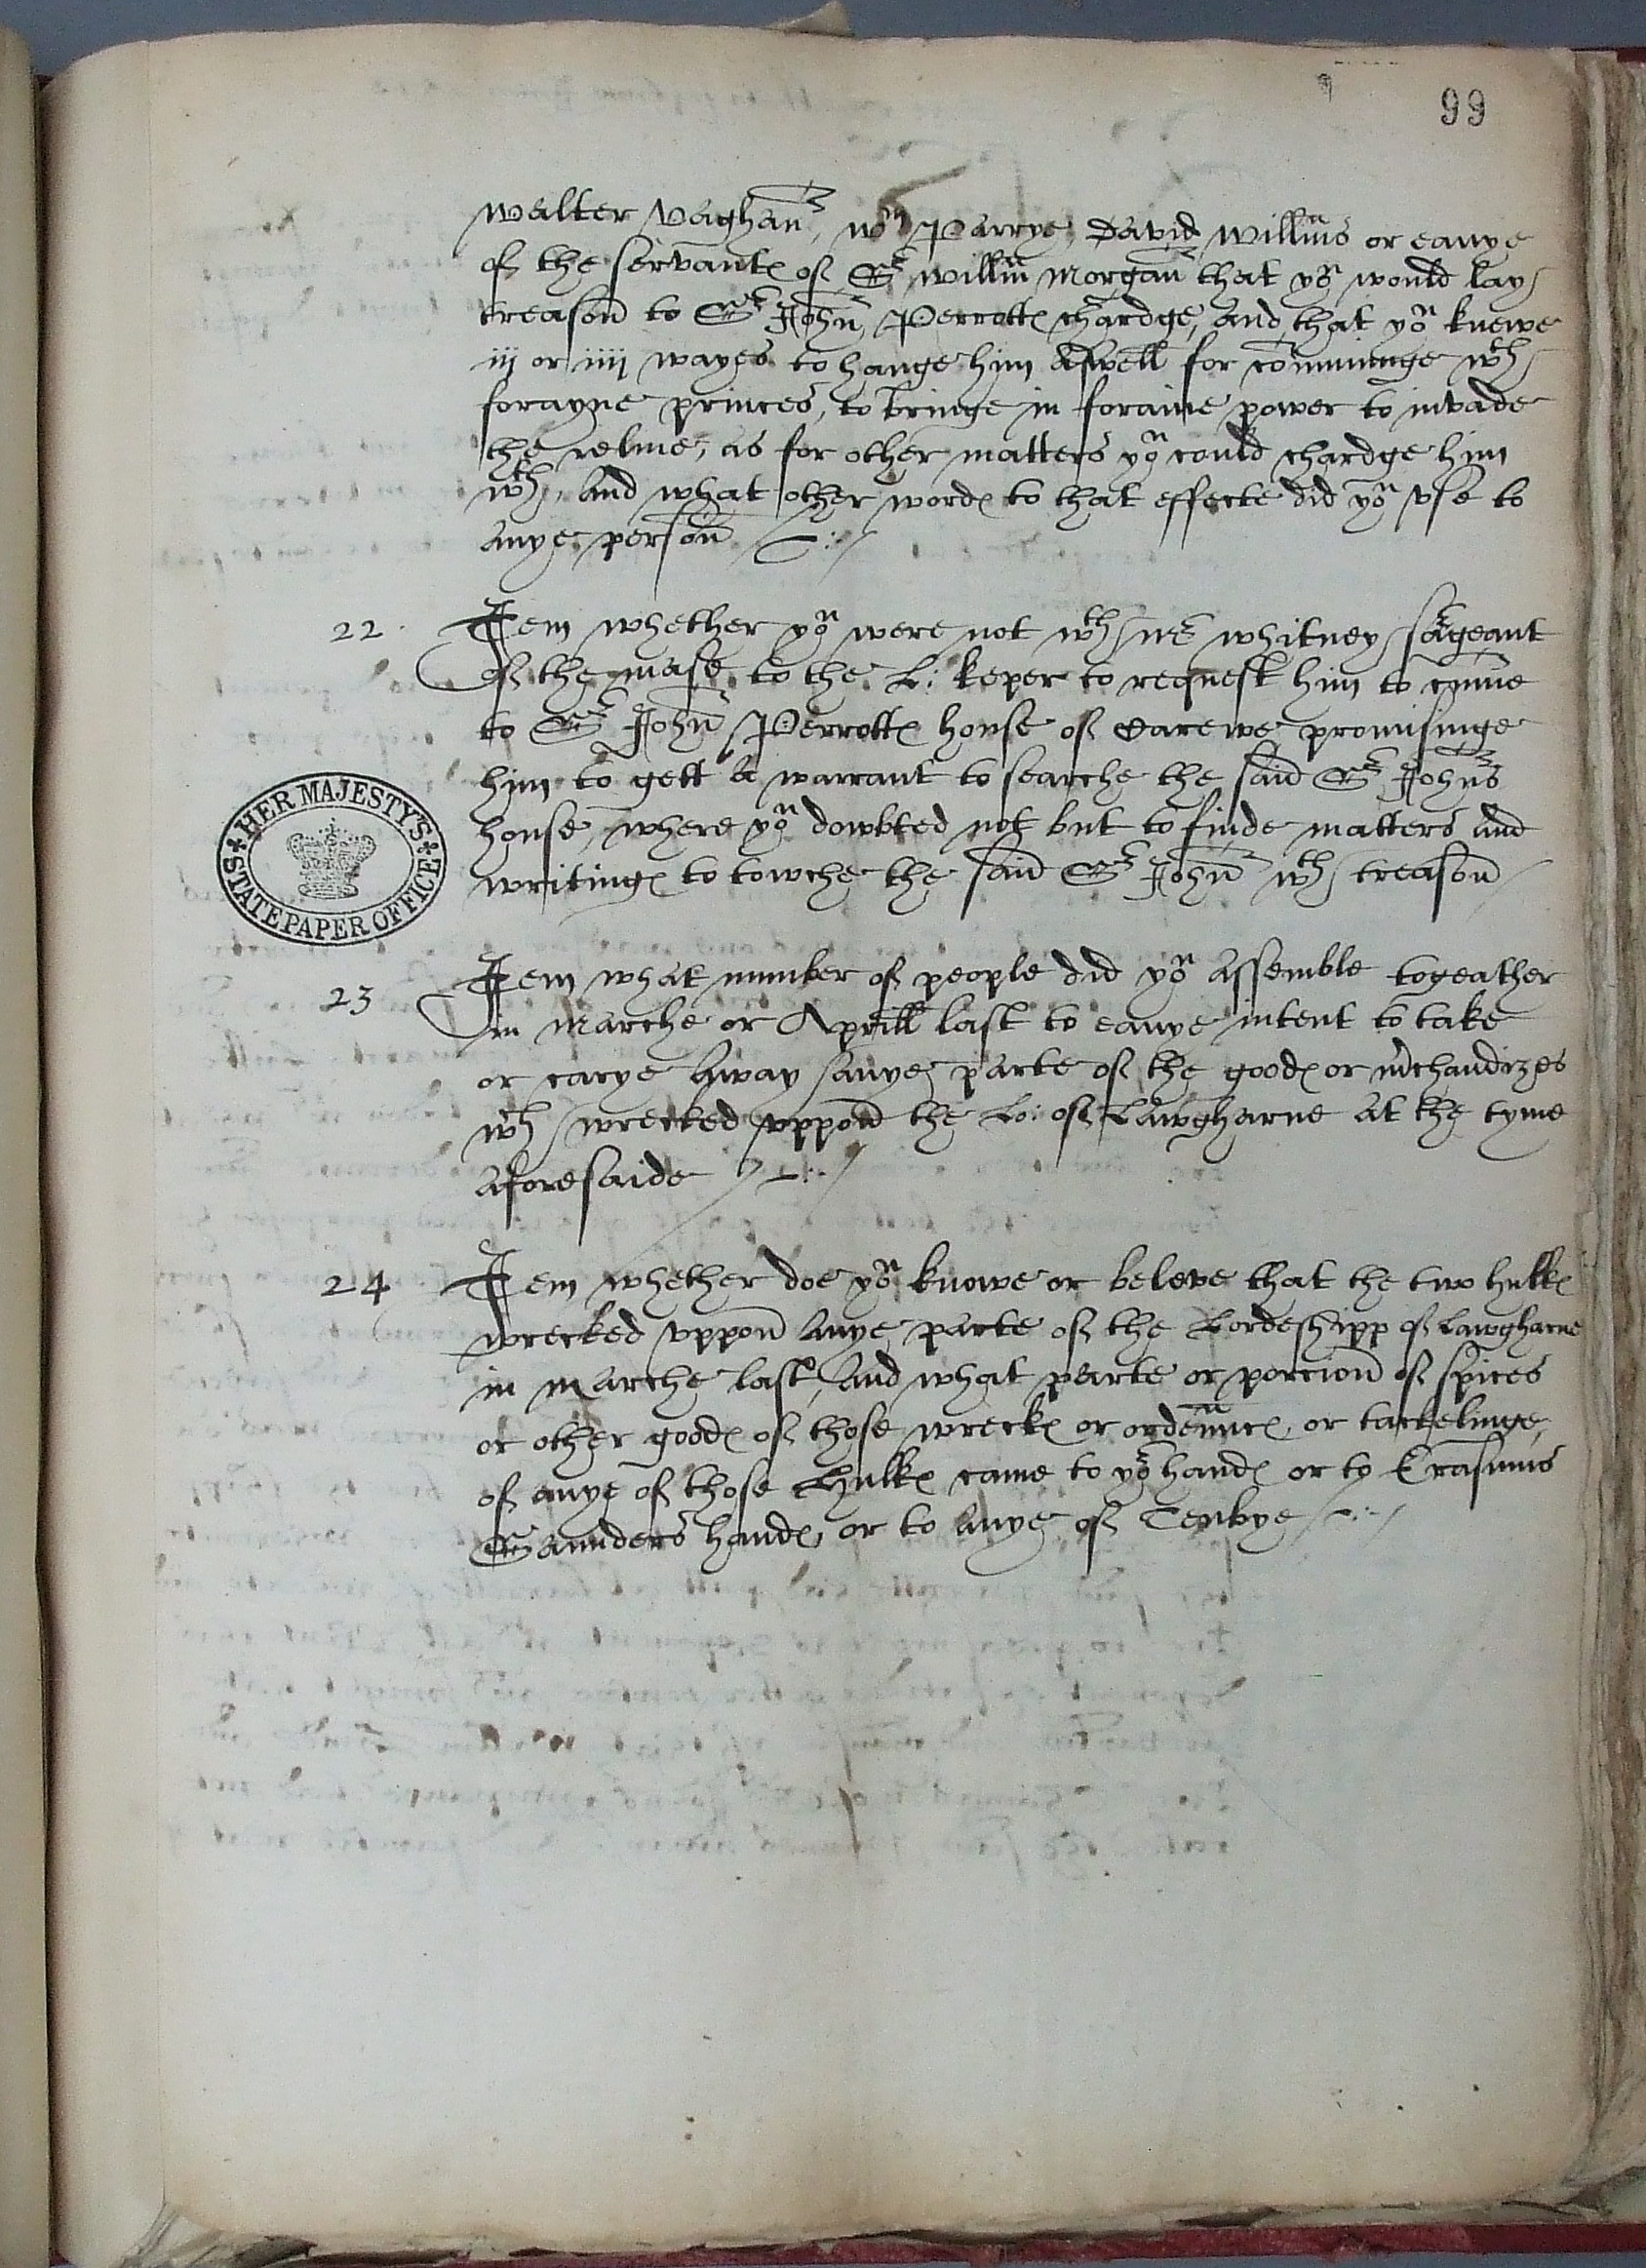 99
walter vaghan, Wm Parrye, David Willms or eanye
of the servants of Sr Willm Morgan that you would lay
treason to Sr John Perrotts chardge, and that you knewe
iij or iiij wayes to hange him aswell for comminge wth
forayne princes, to bringe in foraine power to invade
the relme, as for other matters you could chardge him
wth, and what other words to that effecte did you vse to
anye person
22. Item whether you were not wth mr whitney sargeant
of the mase to the L: keper to request him to comme
to Sr John Perrotts house of Carewe promisinge
him to gett a warrant to searche the said Sr Johns
house, where you dowbted not but to finde matters and
writings to towche the said Sr John wth treason
HER MAJESTY'S STATE PAPER OFFICE
23 Item what number of people did you assemble togeather
in marche or Aprill last to eanye intent to take
or carye away anye parte of the goods or mchandizes
wch wrecked vppon the Lo: of Lawgharne at the tyme
aforesaide
24 Item whether doe you knowe or beleve that the two hulks
wrecked vppon anye parte of the Lordeshipp of Lawgharne
in marche last, and what parte or porcion of spices
or other goods of those wrecks or ordennce, or tackelinge,
of anye of those Hulks came to your hands or to Erasmus
Saunders hands, or to anye of Tenbye